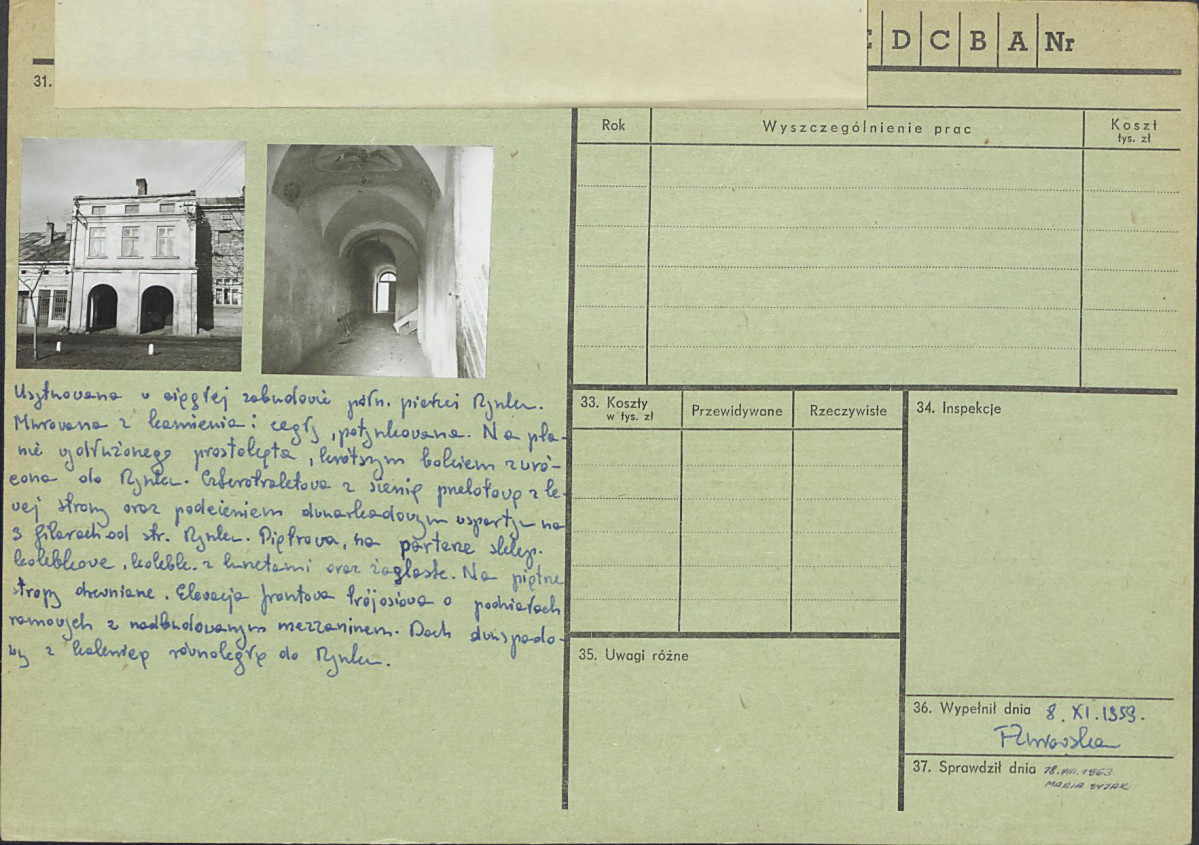 E D C B A Nr
31.
Rok
Wyszczególnienie prac
Koszt
tys. zł
Usytuowana w ciągłej zabudowie półn. pierzei Rynku.
Murowana z kamienia i cegły, potynkowana. Na pla-
nie wydłużonego prostokąta, krótszym bokiem zwró-
cona do Rynku. Czterotraktowa z sienią przelotową z le-
wej strony oraz podcieniem dwuarkadowym wspartym na
3 filarach od str. Rynku. Piętrowa, na parterze sklep.
kolebkowe, kolebk. z lunetami oraz żaglaste. Na piętrze
stropy drewniane. Elewacja frontowa trójosiowa o podziałach
ramowych z nadbudowanym mezzaninem. Dach dwuspado-
wy z kalenicą równoległą do Rynku.
33. Koszty
w tys. zł
Przewidywane
Rzeczywiste
34. Inspekcje
35. Uwagi różne
36. Wypełnił dnia 8. XI. 1959.
37. Sprawdził dnia 18.VIII.1963
MARIA